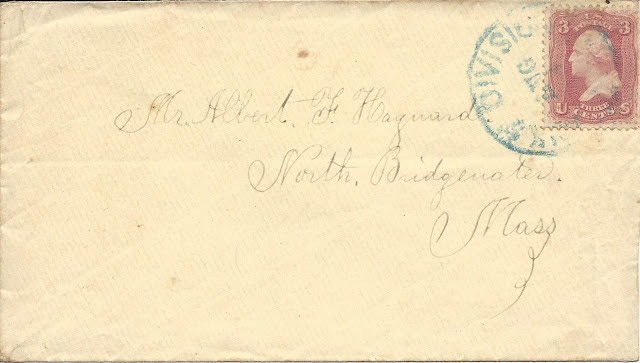 3 U.S. 3
POSTAGE
DIVISIO
AUG
U THREE S
CENTS
Mr. Albert. F. Hayward
North. Bridgewater.
Mass